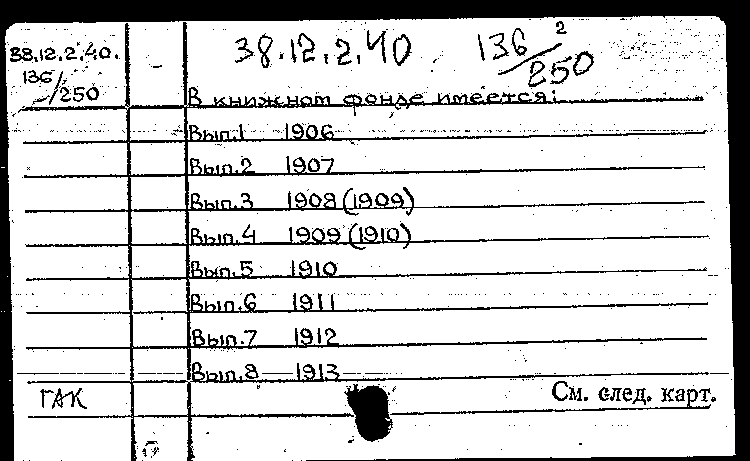 38.12.2.40.
136/250
38.12.2.40 136²/250
В книжном фонде имеется:
Вып.1 1906
Вып.2 1907
Вып.3 1908 (1909)
Вып.4 1909 (1910)
Вып.5 1910
Вып.6 1911
Вып.7 1912
Вып.8 1913
ГАК
См. след. карт.